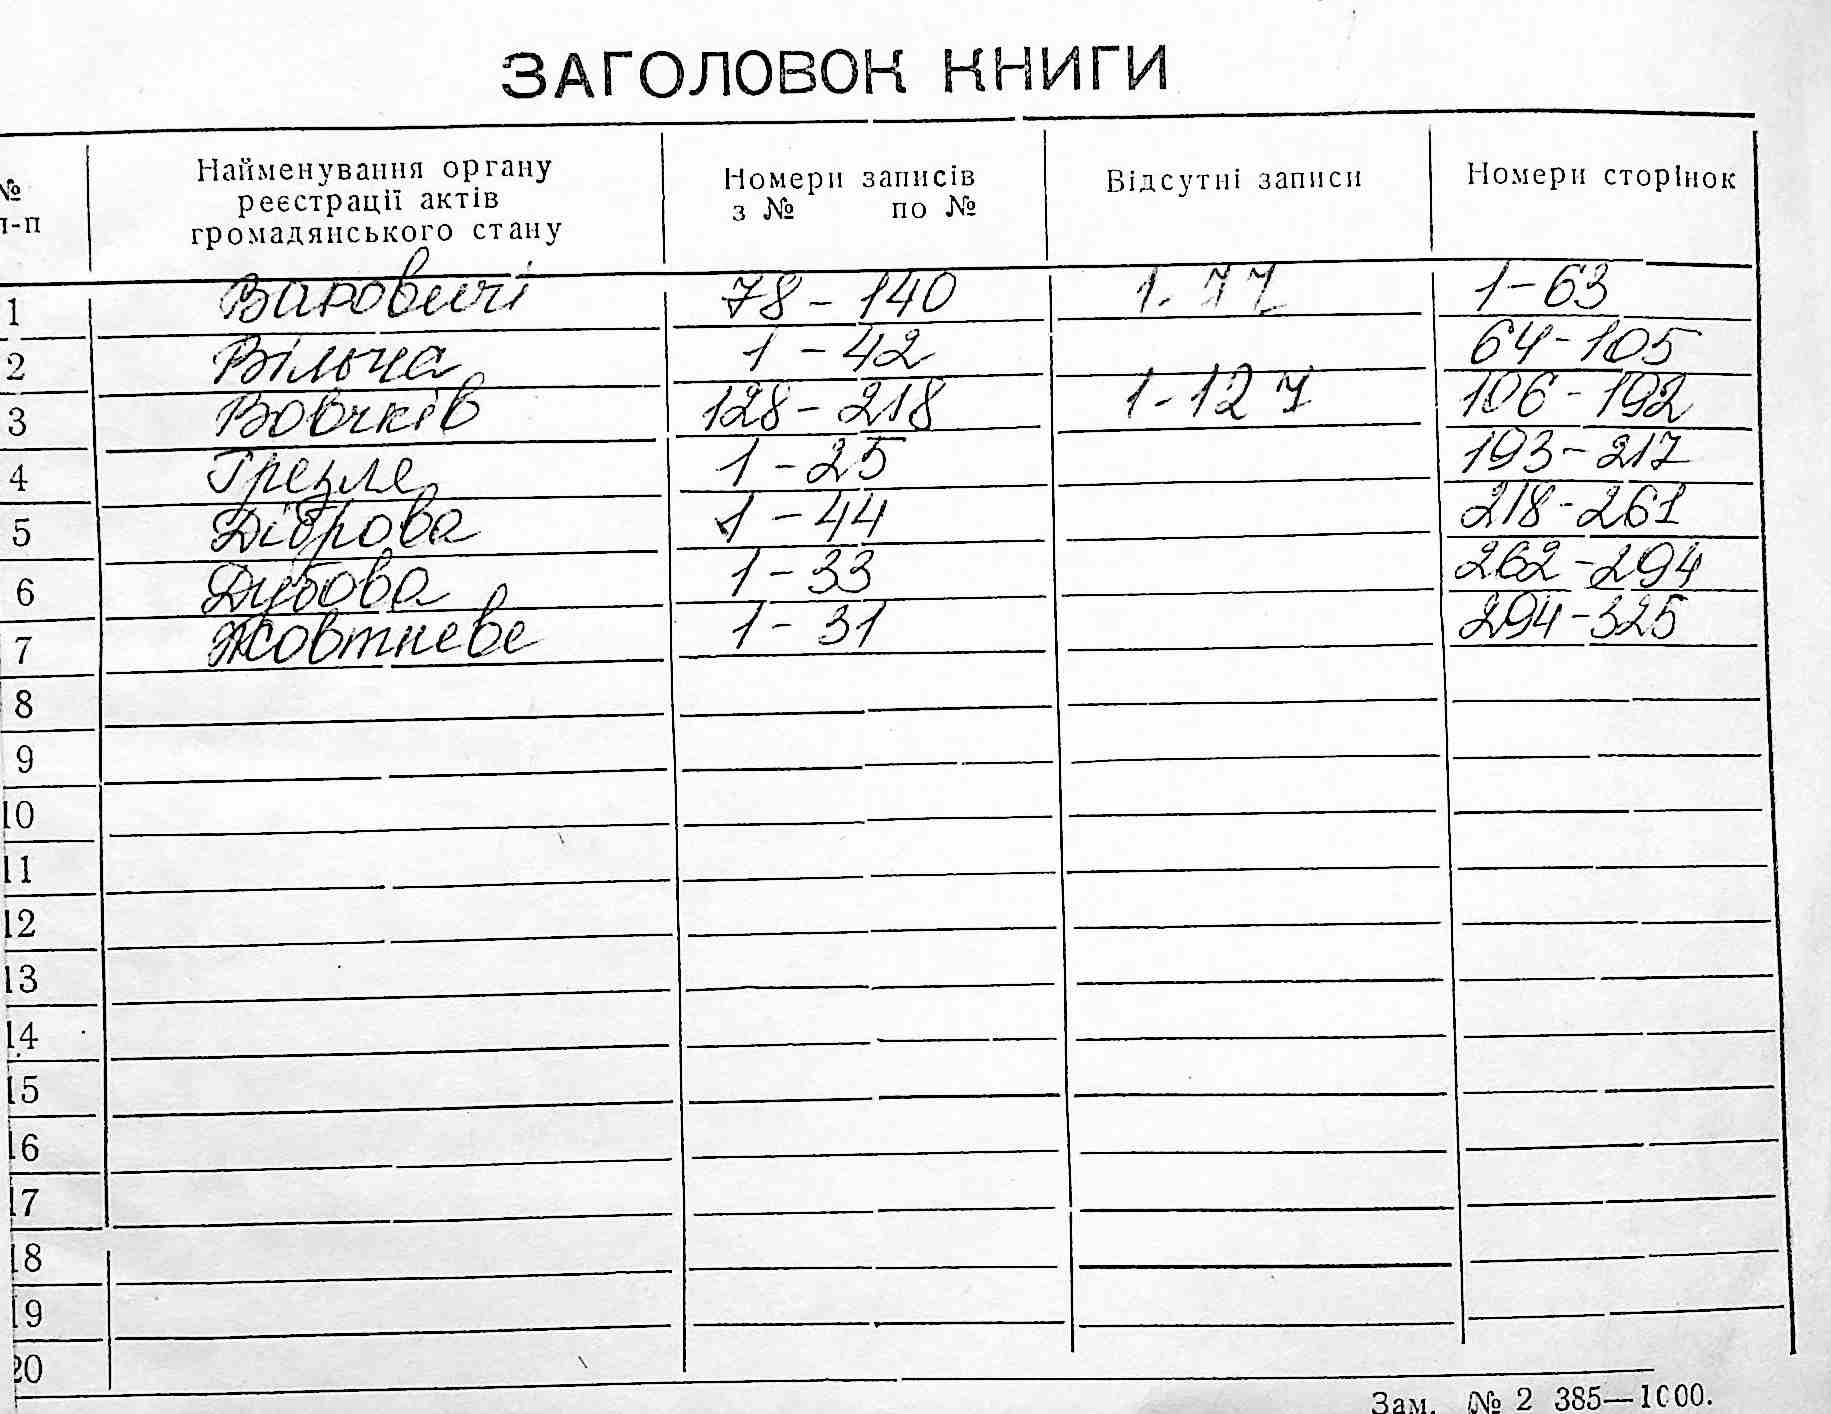 ЗАГОЛОВОК КНИГИ
№ п-п
Найменування органу реєстрації актів громадянського стану
Номери записів з № по №
Відсутні записи
Номери сторінок
1 Варовичі 78 - 140 1-77 1-63
2 Вільча 1 - 42 64-105
3 Вовчків 128-218 1-127 106-192
4 Грезле 1-25 193-217
5 Діброва 1-44 218-261
6 Дубова 1-33 262-294
7 Жовтневе 1-31 294-325
8
9
10
11
12
13
14
15
16
17
18
19
20
Зам. № 2 385—1000.